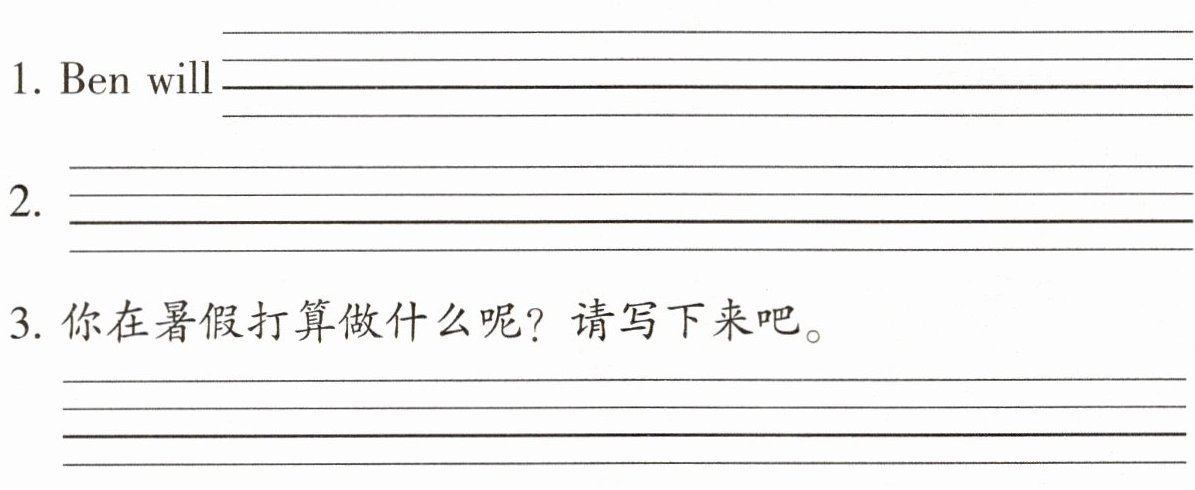 1. Ben will
2.
3. 你在暑假打算做什么呢？请写下来吧。